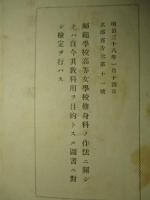 明治三十八年一月十四日
文部省告示第十一號
師範學校高等女學校修身科ノ作法ニ關シ
テハ自今其教科用ヲ目的トスル圖書ニ對
シ檢定ヲ行ハス